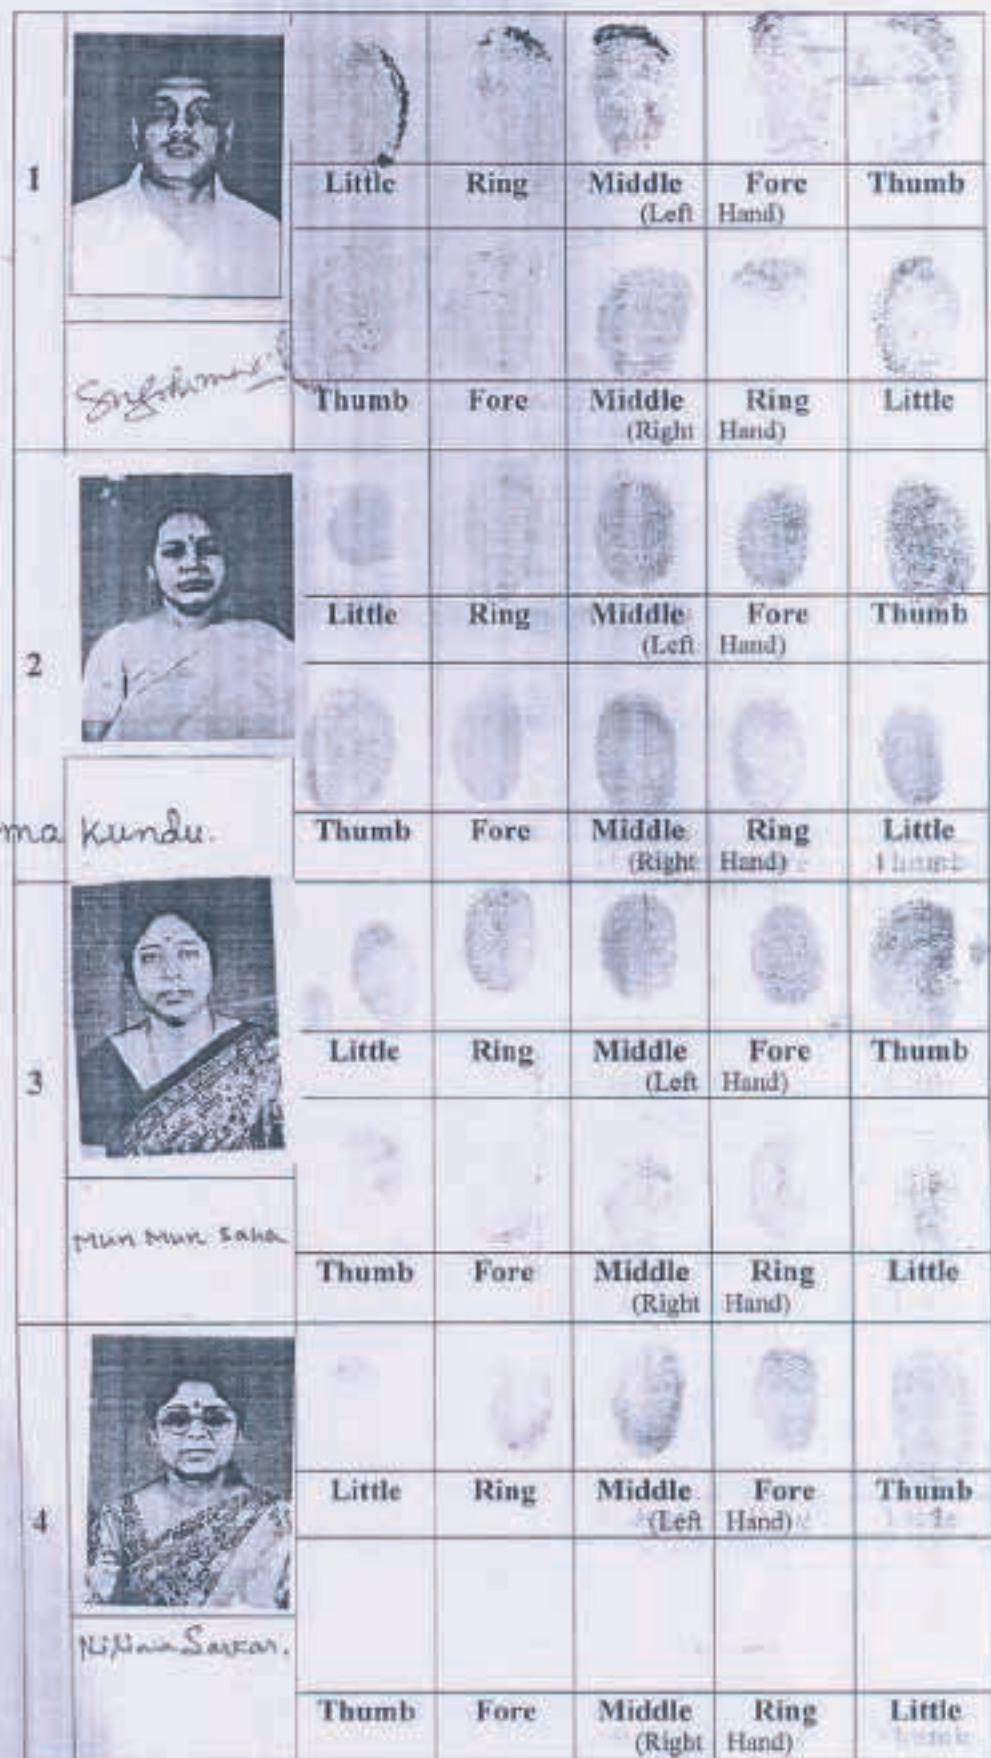 1
Little Ring Middle Fore Thumb
(Left Hand)
Thumb Fore Middle Ring Little
(Right Hand)
2
Little Ring Middle Fore Thumb
(Left Hand)
ma Kundu.
Thumb Fore Middle Ring Little
(Right Hand) Thumb
3
Little Ring Middle Fore Thumb
(Left Hand)
Mun Mun Saha
Thumb Fore Middle Ring Little
(Right Hand)
4
Little Ring Middle Fore Thumb
(Left Hand) Little
Sarkar.
Thumb Fore Middle Ring Little
(Right Hand) Thumb